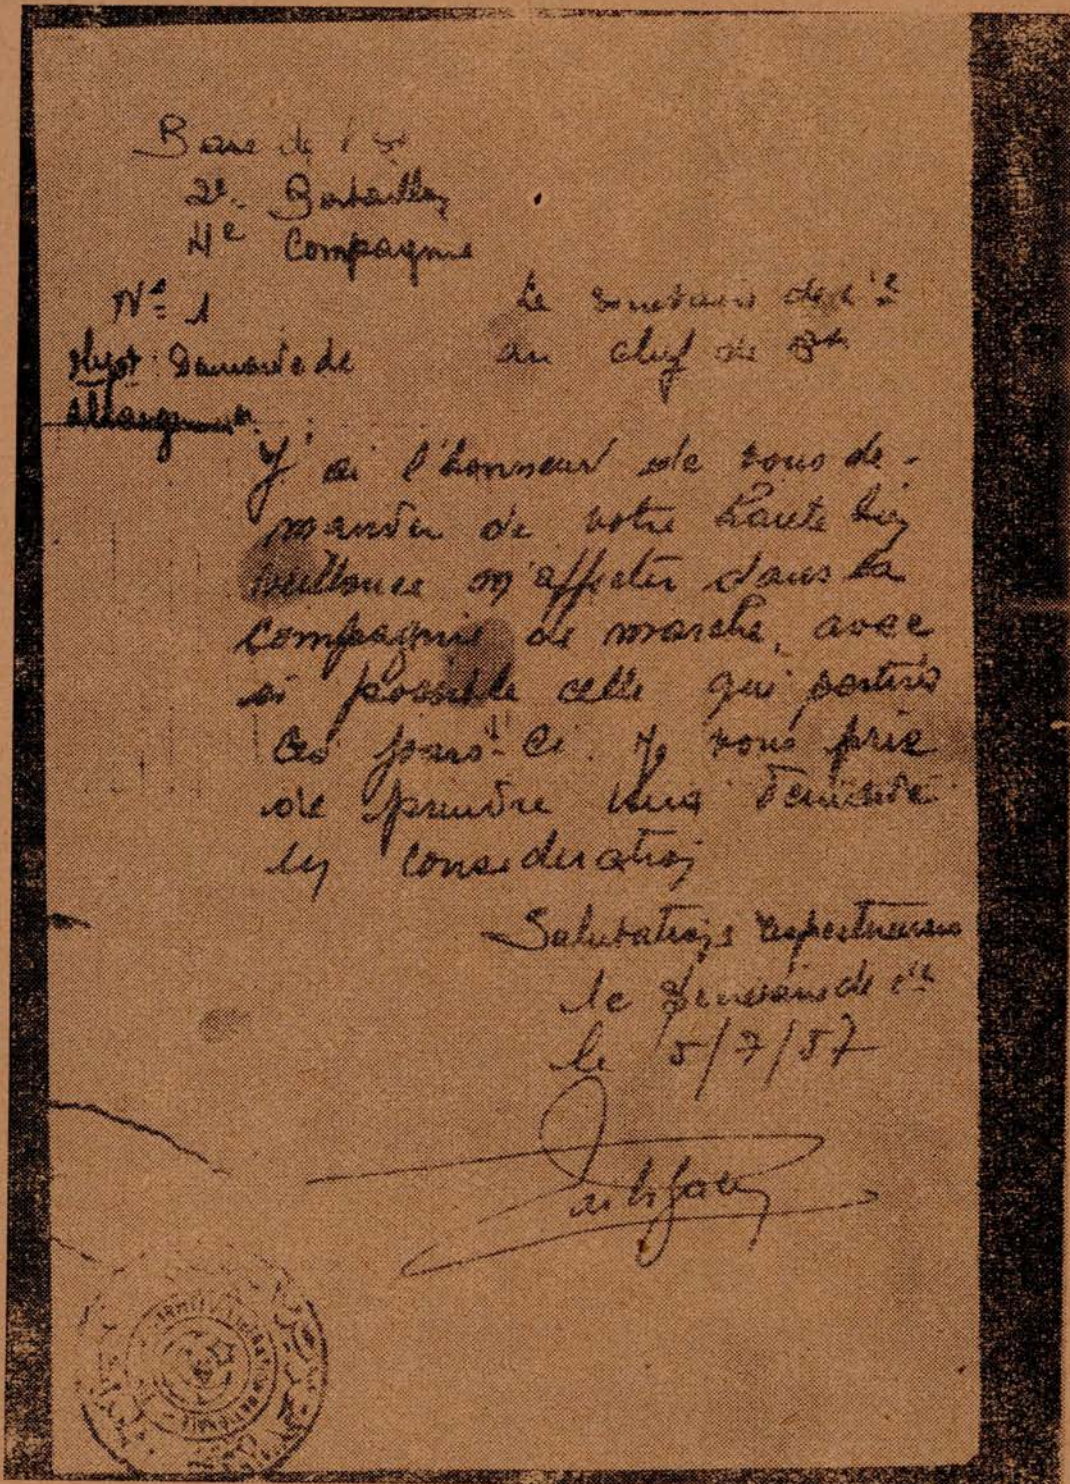 Base de l'Est
2e. Bataillon
4e Compagnie
N° 1
Le secretaire de
au chef de
objet: Demande de
J'ai l'honneur de vous de-
mander de votre haute bien
veillance m'affecter dans la
compagnie de marche, avec
si possible celle qui partira
ces jours-ci. Je vous prie
de prendre ma demande
en consideration
Salutations respectueuses
le secretaire de
le 5/7/57